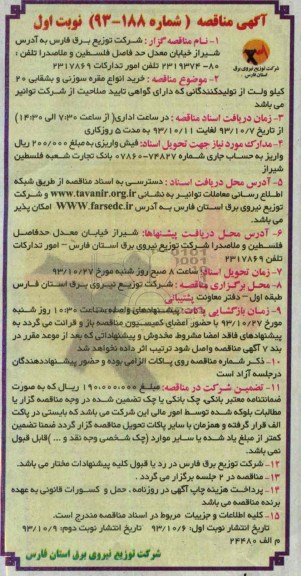 آگهی مناقصه ( شماره ۱۸۸-۹۳) نوبت اول
شرکت توزیع نیروی برق
استان فارس
۱- نام مناقصه گزار: شرکت توزیع برق فارس به آدرس
شیراز خیابان معدل حد فاصل فلسطین و ملاصدرا تلفن :
۸۰-۲۳۱۹۳۷۴ تلفن امور تدارکات ۲۳۱۷۸۶۹
۲- موضوع مناقصه : خرید انواع مقره سوزنی و بشقابی ۲۰
کیلو ولت از تولیدکنندگانی که دارای گواهی تایید صلاحیت از شرکت توانیر
می باشد
۳- زمان دریافت اسناد مناقصه : در ساعت اداری( از ساعت ۷:۳۰ الی ۱۴:۳۰)
از تاریخ ۹۳/۱۰/۷ لغایت ۹۳/۱۰/۱۱ به مدت ۵ روزکاری
۴- مدارک مورد نیاز جهت تحویل اسناد: فیش واریزی به مبلغ ۲۰۰/۰۰۰ ریال
واریز به حساب جاری شماره ۷۴۸۲۷-۰۷۸۶۰ بانک تجارت شعبه فلسطین
شیراز
۵- آدرس محل دریافت اسناد : دسترسی به اسناد مناقصه از طریق شبکه
اطلاع رسانی معاملات توانیر به نشانی www.tavanir.org.ir و شرکت
توزیع نیروی برق استان فارس به آدرس WWW.farsedc.ir امکان پذیر
می باشد
۶- آدرس محل دریافت پیشنهادها: شیراز خیابان معدل حدفاصل
فلسطین و ملاصدرا شرکت توزیع نیروی برق استان فارس - امور تدارکات
تلفن ۲۳۱۷۸۶۹
۷- زمان تحویل اسناد: ساعت ۸ صبح روز شنبه مورخ ۹۳/۱۰/۲۷
۸- محل برگزاری مناقصه : شرکت توزیع نیروی برق استان فارس
طبقه اول - دفتر معاونت پشتیبانی
۹- زمان بازگشایی پاکات: پیشنهادهای واصله ساعت ۱۰:۳۰ روز شنبه
مورخ ۹۳/۱۰/۲۷ با حضور اعضای کمیسیون مناقصه باز و قرائت می گردد به
پیشنهادهای فاقد امضا مشروط، مخدوش و پیشنهاداتی که بعد از موعد مقرر در
بند ۷ آگهی مناقصه واصل شود ترتیب اثر داده نخواهد شد
۱۰- ذکر شماره مناقصه روی پاکات الزامی بوده و حضور پیشنهاددهندگان
درجلسه آزاد است
۱۱- تضمین شرکت در مناقصه: مبلغ ۱۹۰.۰۰۰.۰۰۰ ریال که به صورت
ضمانتنامه معتبر بانکی، چک بانکی یا چک تضمین شده در وجه مناقصه گزار یا
مطالبات بلوکه شده توسط امور مالی این شرکت می باشد که بایستی در پاکت
الف قرار گرفته و همزمان با سایر پاکات تحویل مناقصه گزار گردد ضمنا تضمین
کمتر از مبلغ یاد شده یا سایر موارد (چک شخصی وجه نقد و ... )قابل قبول
نمی باشد.
۱۲- شرکت توزیع برق فارس در رد یا قبول کلیه پیشنهادات مختار می باشد.
۱۳- مناقصه در ۲ جلسه برگزار می گردد .
۱۴- پرداخت هزینه چاپ آگهی در روزنامه ، حمل و کسورات قانونی به عهده
برنده مناقصه می باشد.
۱۵- کلیه اطلاعات و جزییات مربوط در اسناد مناقصه مندرج است.
تاریخ انتشار نوبت اول: ۹۳/۱۰/۶ تاریخ انتشار نوبت دوم: ۹۳/۱۰/۹
۲۴۴۸۰ م الف
شرکت توزیع نیروی برق استان فارس